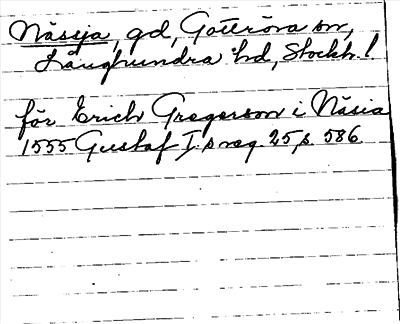 Nässja, gd, Gottröra sn,
Långhundra hd, Stockh. l
för Erich Gregersson i Näsia
1555 Gustaf I:s reg. 25, s. 586.